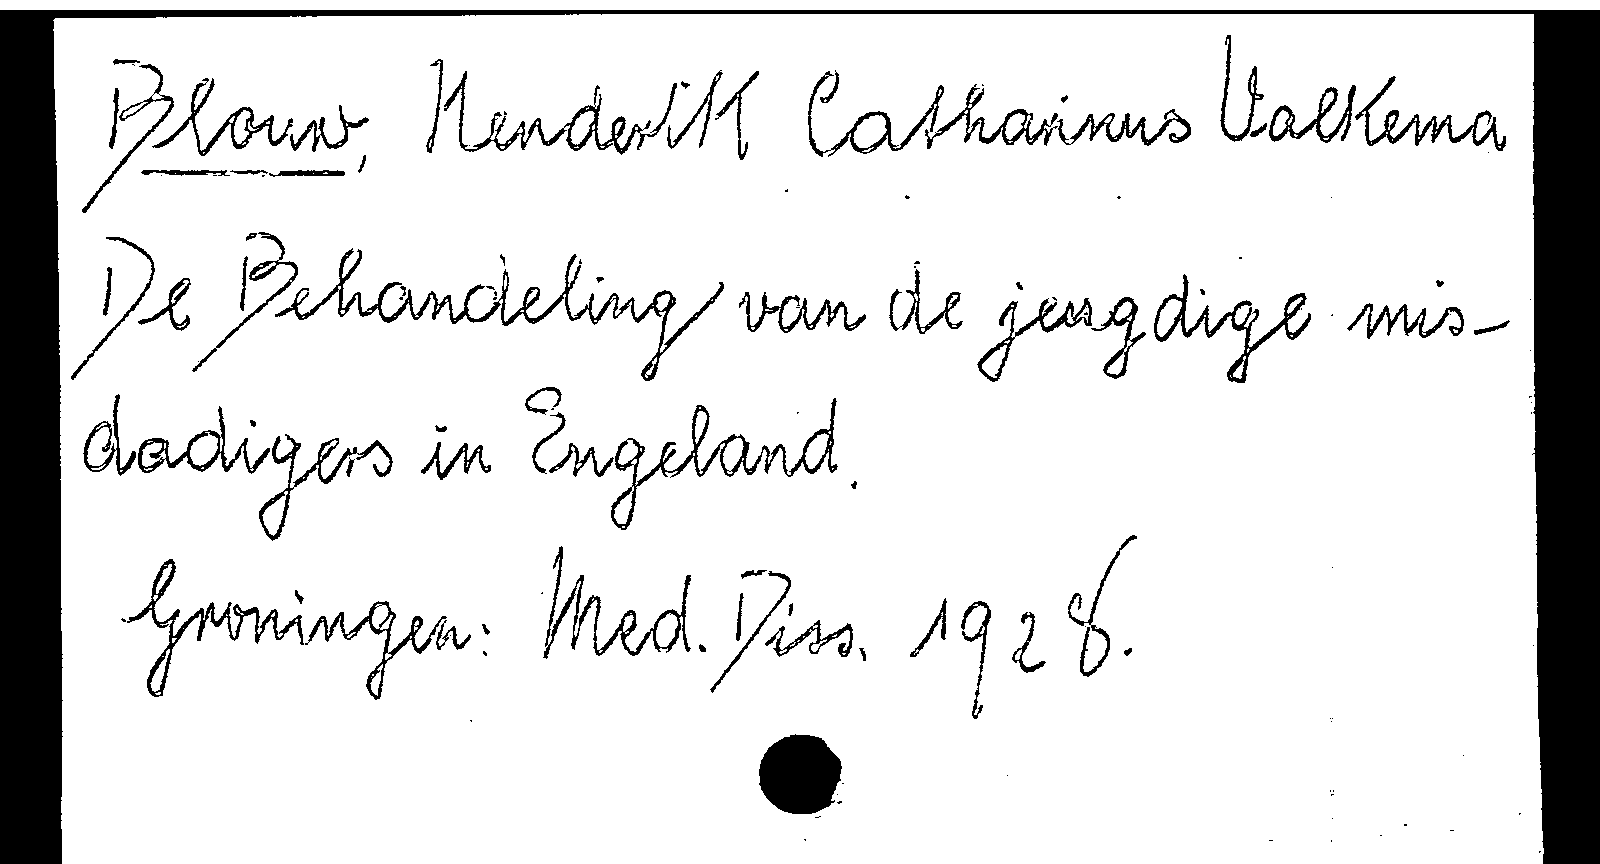 Blouw, Henderik Catharinus Valkema
De Behandeling van de jeugdige mis-
dadigers in Engeland.
Groningen: Med. Diss. 1928.